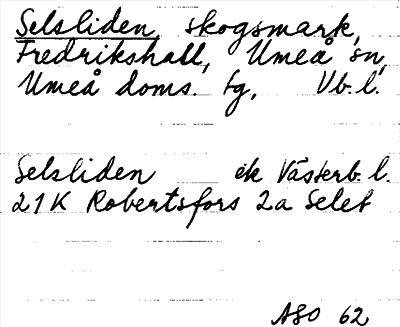 Selsliden, skogsmark,
Fredrikshall, Umeå sn,
Umeå doms. tg, Vb. l.
Selsliden ek Västerb. l.
21K Robertsfors 2a Selet
ASO 62